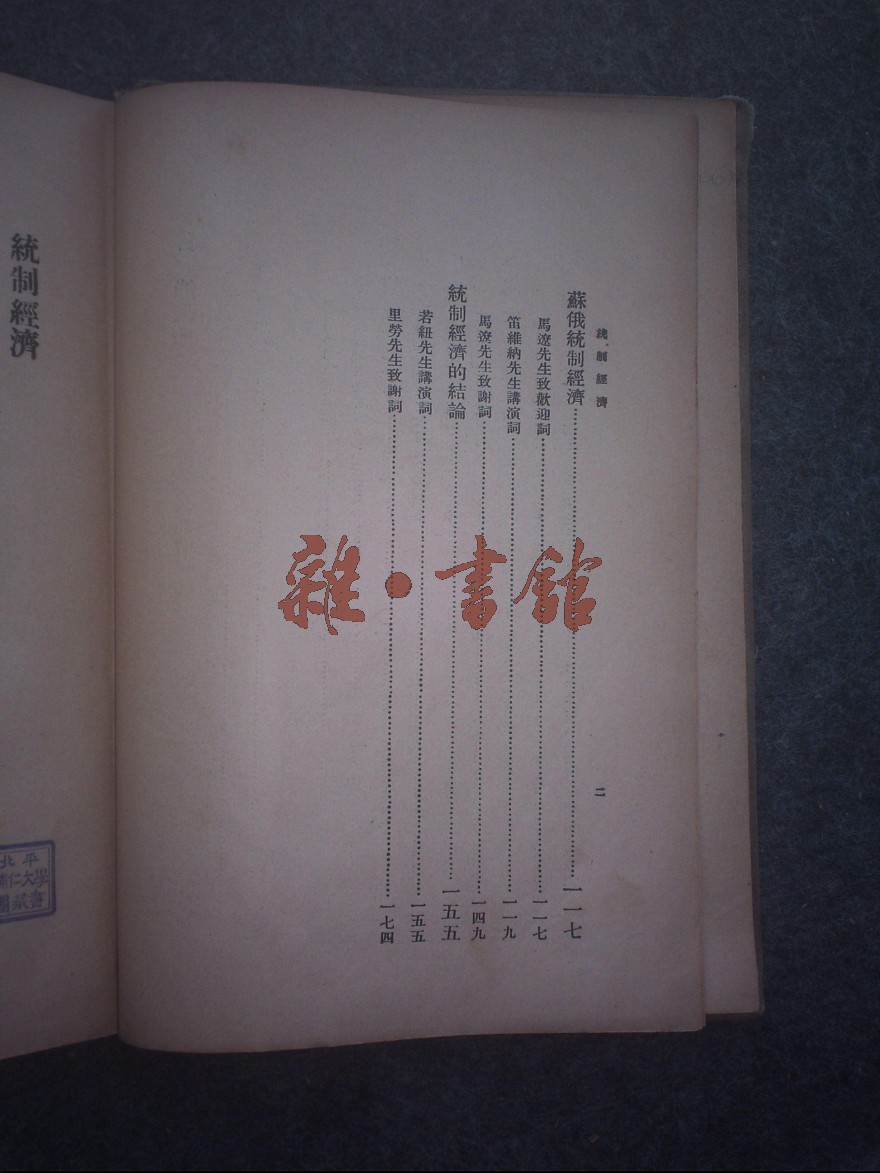 統制經濟
蘇俄統制經濟……一一七
馬遼先生致歡迎詞……一一七
笛維納先生講演詞……一一九
馬遼先生致謝詞……一四九
統制經濟的結論……一五五
若紐先生講演詞……一五五
里勞先生致謝詞……一七四
二
統制經濟
雜·書館
北平
輔仁大學
圖書